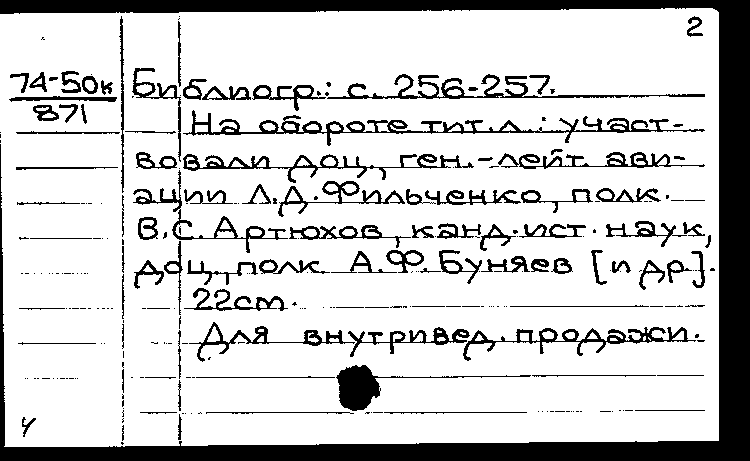 2
74-50к
871
Библиогр.: с. 256-257.
На обороте тит. л.: участ-
вовали доц., ген.-лейт. ави-
ации Л.Д. Фильченко, полк.
В.С. Артюхов, канд. ист. наук,
доц., полк. А.Ф. Буняев [и др].
22см.
Для внутривед. продажи.